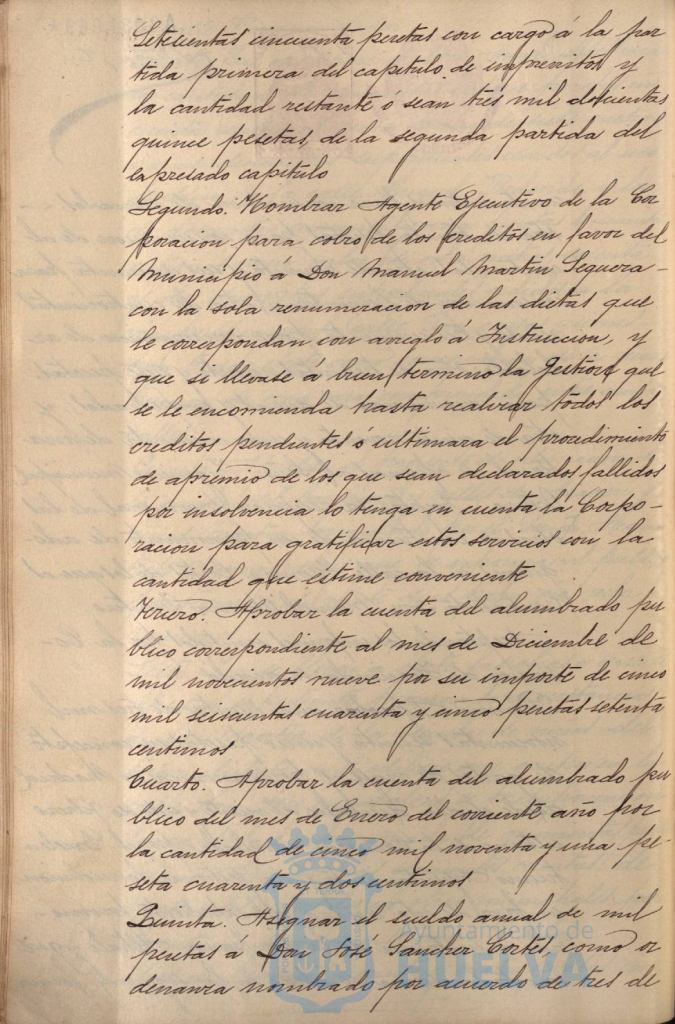 Setecientas cincuenta pesetas con cargo á la par
tida primera del capitulo de imprevistos y
la cantidad restante ó sean tres mil doscientas
quince pesetas, de la segunda partida del
expresado capitulo
Segundo. Nombrar Agente Ejecutivo de la Cor
poracion para cobro de los creditos en favor del
Municipio á Don Manuel Martin Sequera-
con la sola renumeracion de las dietas que
le correspondan con arreglo á Instruccion, y
que si llevase á buen termino la gestion que
se le encomienda hasta realizar todos los
creditos pendientes ó ultimara el procedimiento
de apremio de los que sean declarados fallidos
por insolvencia lo tenga en cuenta la Corpo-
racion para gratificar estos servicios con la
cantidad que estime conveniente
Tercero. Aprobar la cuenta del alumbrado pu
blico correspondiente al mes de Diciembre de
mil novecientos nueve por su importe de cinco
mil seiscientas cuarenta y cinco pesetas setenta
centimos
Cuarto. Aprobar la cuenta del alumbrado pu
blico del mes de Enero del corriente año por
la cantidad de cinco mil noventa y una pe-
seta cuarenta y dos centimos
Quinta. Asignar el sueldo anual de mil
pesetas á Don José Sanchez Cortés, como or
denanza nombrado por acuerdo de tres de
Ayuntamiento de
HUELVA